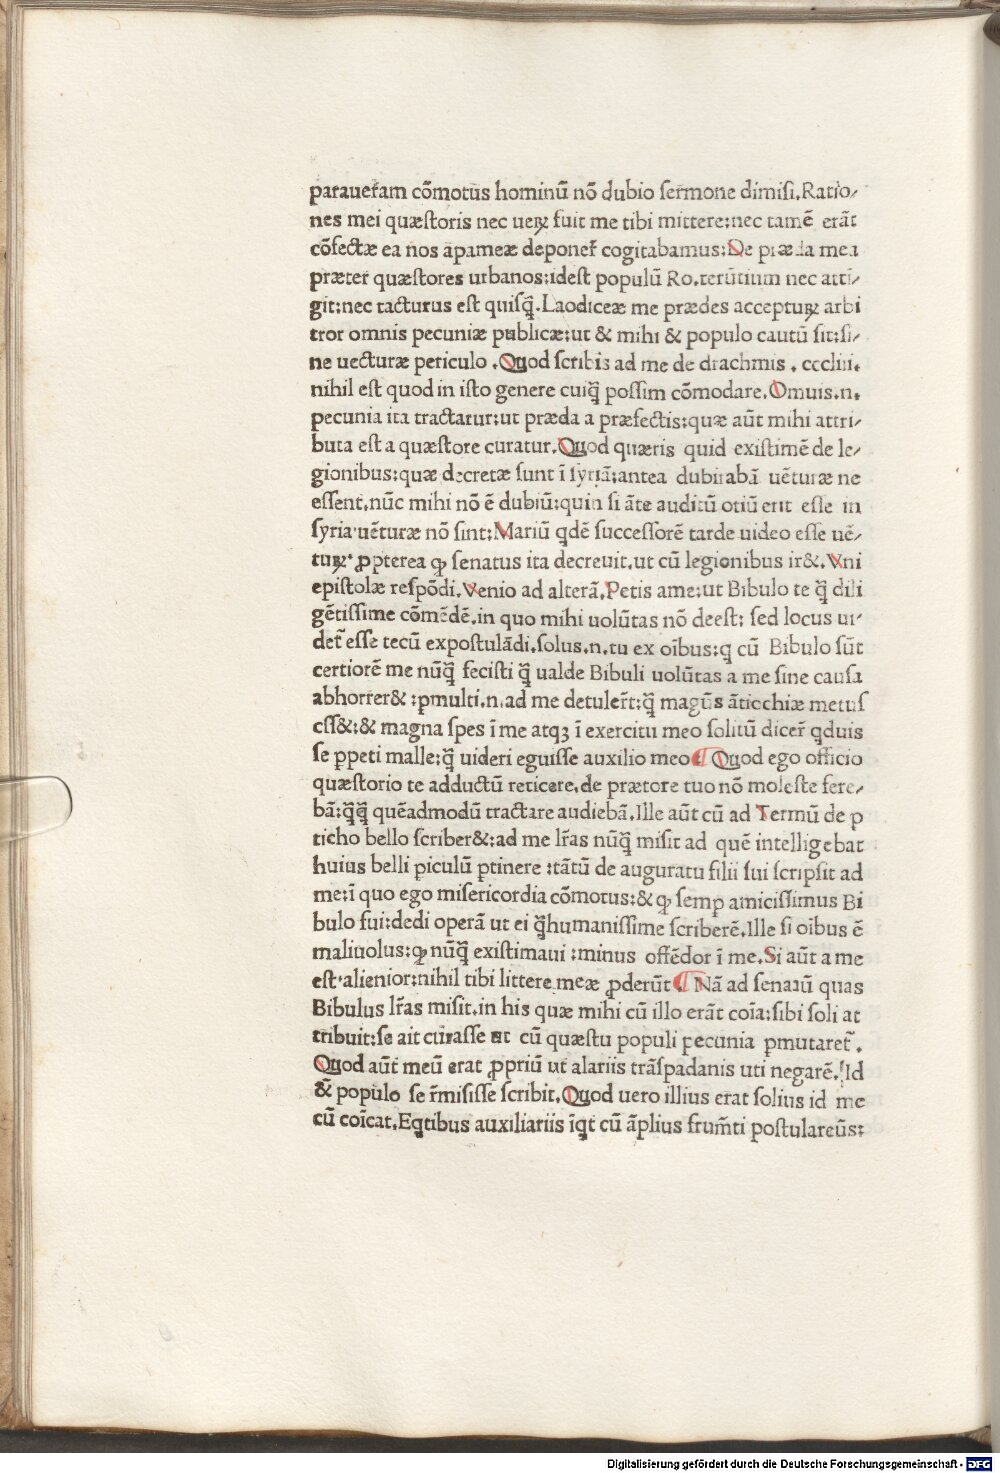 paraueram cōmotus hominū nō dubio sermone dimisi.Ratio⸗
nes mei quæstoris nec ueꝝ fuit me tibi mittere:nec tamē erāt
cōfectæ ea nos apameæ deponer̄ cogitabamus:De præda mea
præter quæstores urbanos:idest populū Ro.terūtium nec atti⸗
git:nec tacturus est quisq̄.Laodiceæ me prædes acceptuꝝ arbi
tror omnis pecuniæ publicæ:ut & mihi & populo cautū sit:si⸗
ne uecturæ periculo .Quod scribis ad me de drachmis . cccliii.
nihil est quod in isto genere cuiq̄ possim cōmodare.Omuis.n.
pecunia ita tractatur:ut præda a præfectis:quæ aūt mihi attri⸗
buta est a quæstore curatur.Quod quæris quid existimē de le⸗
gionibus:quæ decretæ sunt ī syriā:antea dubitabā uēturæ ne
essent.nūc mihi nō ē dubiū:quin si āte auditū otiū erit esse in
syria uēturæ nō sint:Mariū qdē successorē tarde uideo esse uē⸗
tuꝝ ꝓpterea ꝙ senatus ita decreuit.ut cū legionibus ir&.Vni
epistolæ respōdi.Venio ad alterā.Petis ame:ut Bibulo te q̄ dili
gētissime cōmēdē.in quo mihi uolūtas nō deest: sed locus ui⸗
det̄ esse tecū expostulādi.solus.n.tu ex oībus:q cū Bibulo sūt
certiorē me nūq̄ fecisti q̄ ualde Bibuli uolūtas a me sine causa
abhorrer& :ꝑmulti.n.ad me detuler̄t:q̄ magūs āticchiæ metus
ess&:& magna spes ī me atqꝫ ī exercitu meo solitū dicer̄ qduis
se ꝑpeti malle:q̄ uideri eguisse auxilio meo ¶ Quod ego officio
quæstorio te adductū reticere.de prætore tuo nō moleste fere⸗
bā:q̄q̄ quēadmodū tractare audiebā.Ille aūt cū ad Termū de p
ticho bello scriber&:ad me lr̄as nūq̄ misit ad quē intelligebat
huius belli ꝑiculū ꝑtinere :tātū de auguratu filii sui scripsit ad
me:ī quo ego misericordia cōmotus:& ꝙ semꝑ amicissimus Bi
bulo fui:dedi operā ut ei q̄humanissime scriberē.Ille si oībus ē
maliuolus:ꝙ nūq̄ existimaui :minus offēdor ī me.Si aūt a me
est alienior:nihil tibi littere meæ ꝓderūt ¶ Nā ad senatū quas
Bibulus lr̄as misit.in his quæ mihi cū illo erāt coīa:sibi soli at
tribuit:se ait curasse ut cū quæstu populi pecunia ꝑmutaret̄.
Quod aūt meū erat ꝓpriū ut alariis trāspadanis uti negarē.Id
& populo se r̄misisse scribit.Quod uero illius erat solius id me
cū coīcat.Eqtibus auxiliariis īqt cū āplius frum̄ti postulareūs:
Digitalisierung gefördert durch die Deutsche Forschungsgemeinschaft - DFG